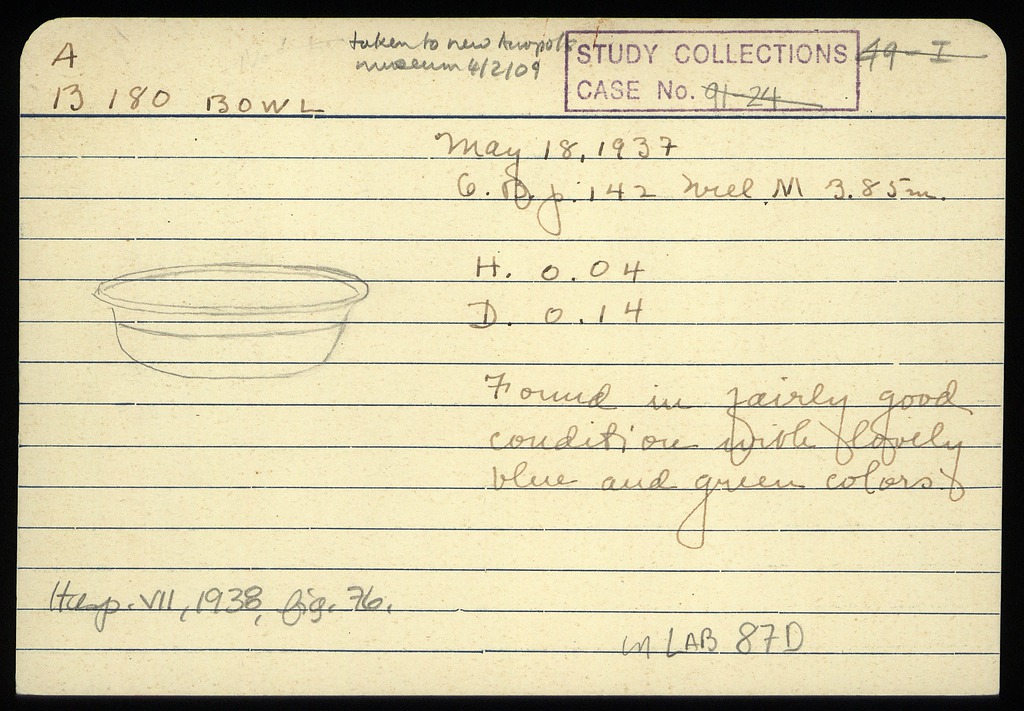 A
taken to new Acropolis
museum 4/2/09
STUDY COLLECTIONS 49-I
CASE No. 91-24
B 180 BOWL
May 18, 1937
p. 142 Well M 3.85m.
H. 0.04
D. 0.14
Found in fairly good
condition with lovely
blue and green colors.
Hesp. VII, 1938, fig. 76.
in LAB 87D